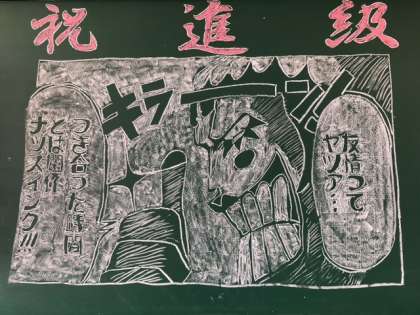 祝 進 級
友情って
ヤツァ‥
キラーン!!
つき合った時間
とは関係
ナッスィング!!!